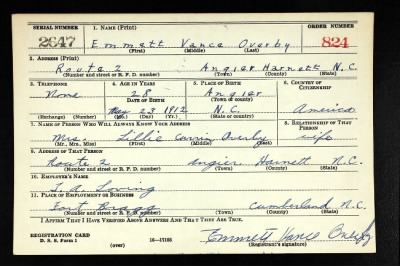 SERIAL NUMBER 1. NAME (Print) ORDER NUMBER
2647 Emmett Vance Overby 824
(First) (Middle) (Last)
2. ADDRESS (Print)
Route 2 Angier Harnett N.C.
(Number and street or R. F. D. number) (Town) (County) (State)
3. TELEPHONE 4. AGE IN YEARS 5. PLACE OF BIRTH 6. COUNTRY OF CITIZENSHIP
None 28 Angier
DATE OF BIRTH (Town or county)
May 23 1912 N.C. America
(Exchange) (Number) (Mo.) (Day) (Yr.) (State or country)
7. NAME OF PERSON WHO WILL ALWAYS KNOW YOUR ADDRESS 8. RELATIONSHIP OF THAT PERSON
Mrs. Lillie Overby wife
(Mr., Mrs., Miss) (First) (Middle) (Last)
9. ADDRESS OF THAT PERSON
Route 2 Angier Harnett N.C.
(Number and street or R. F. D. number) (Town) (County) (State)
10. EMPLOYER'S NAME
T. A. Loving
11. PLACE OF EMPLOYMENT OR BUSINESS
Fort Bragg Cumberland N.C.
(Number and street or R. F. D. number) (Town) (County) (State)
I AFFIRM THAT I HAVE VERIFIED ABOVE ANSWERS AND THAT THEY ARE TRUE.
REGISTRATION CARD Emmett Vance Overby
D. S. S. Form 1 (over) 16—17105 (Registrant's signature)